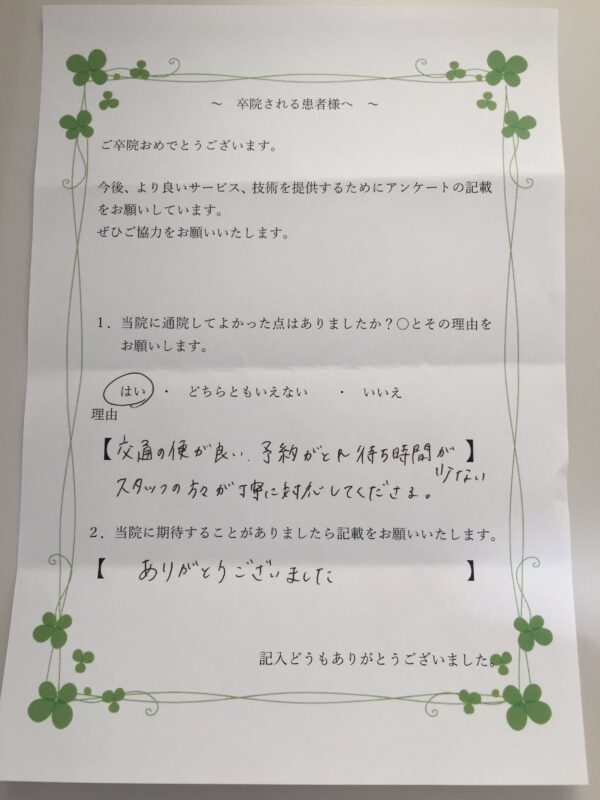 ～ 卒院される患者様へ ～
ご卒院おめでとうございます。
今後、より良いサービス、技術を提供するためにアンケートの記載
をお願いしています。
ぜひご協力をお願いいたします。
１．当院に通院してよかった点はありましたか？○とその理由を
お願いします。
はい ・ どちらともいえない ・ いいえ
理由
【交通の便が良い、予約がとれ待ち時間が】
少ない
スタッフの方々が丁寧に対応してくださる。
２．当院に期待することがありましたら記載をお願いいたします。
【 ありがとうございました 】
記入どうもありがとうございました。